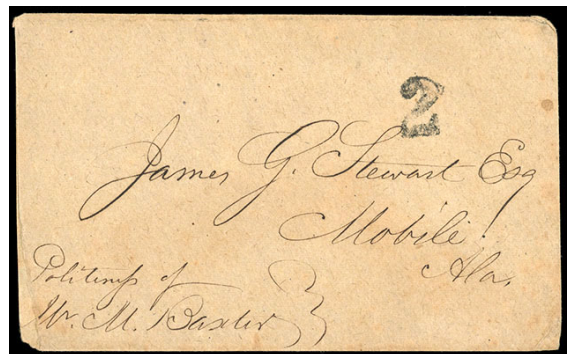 2
James G. Stewart Esq
Mobile.
Ala.
Politeness of
W. M. Baxter